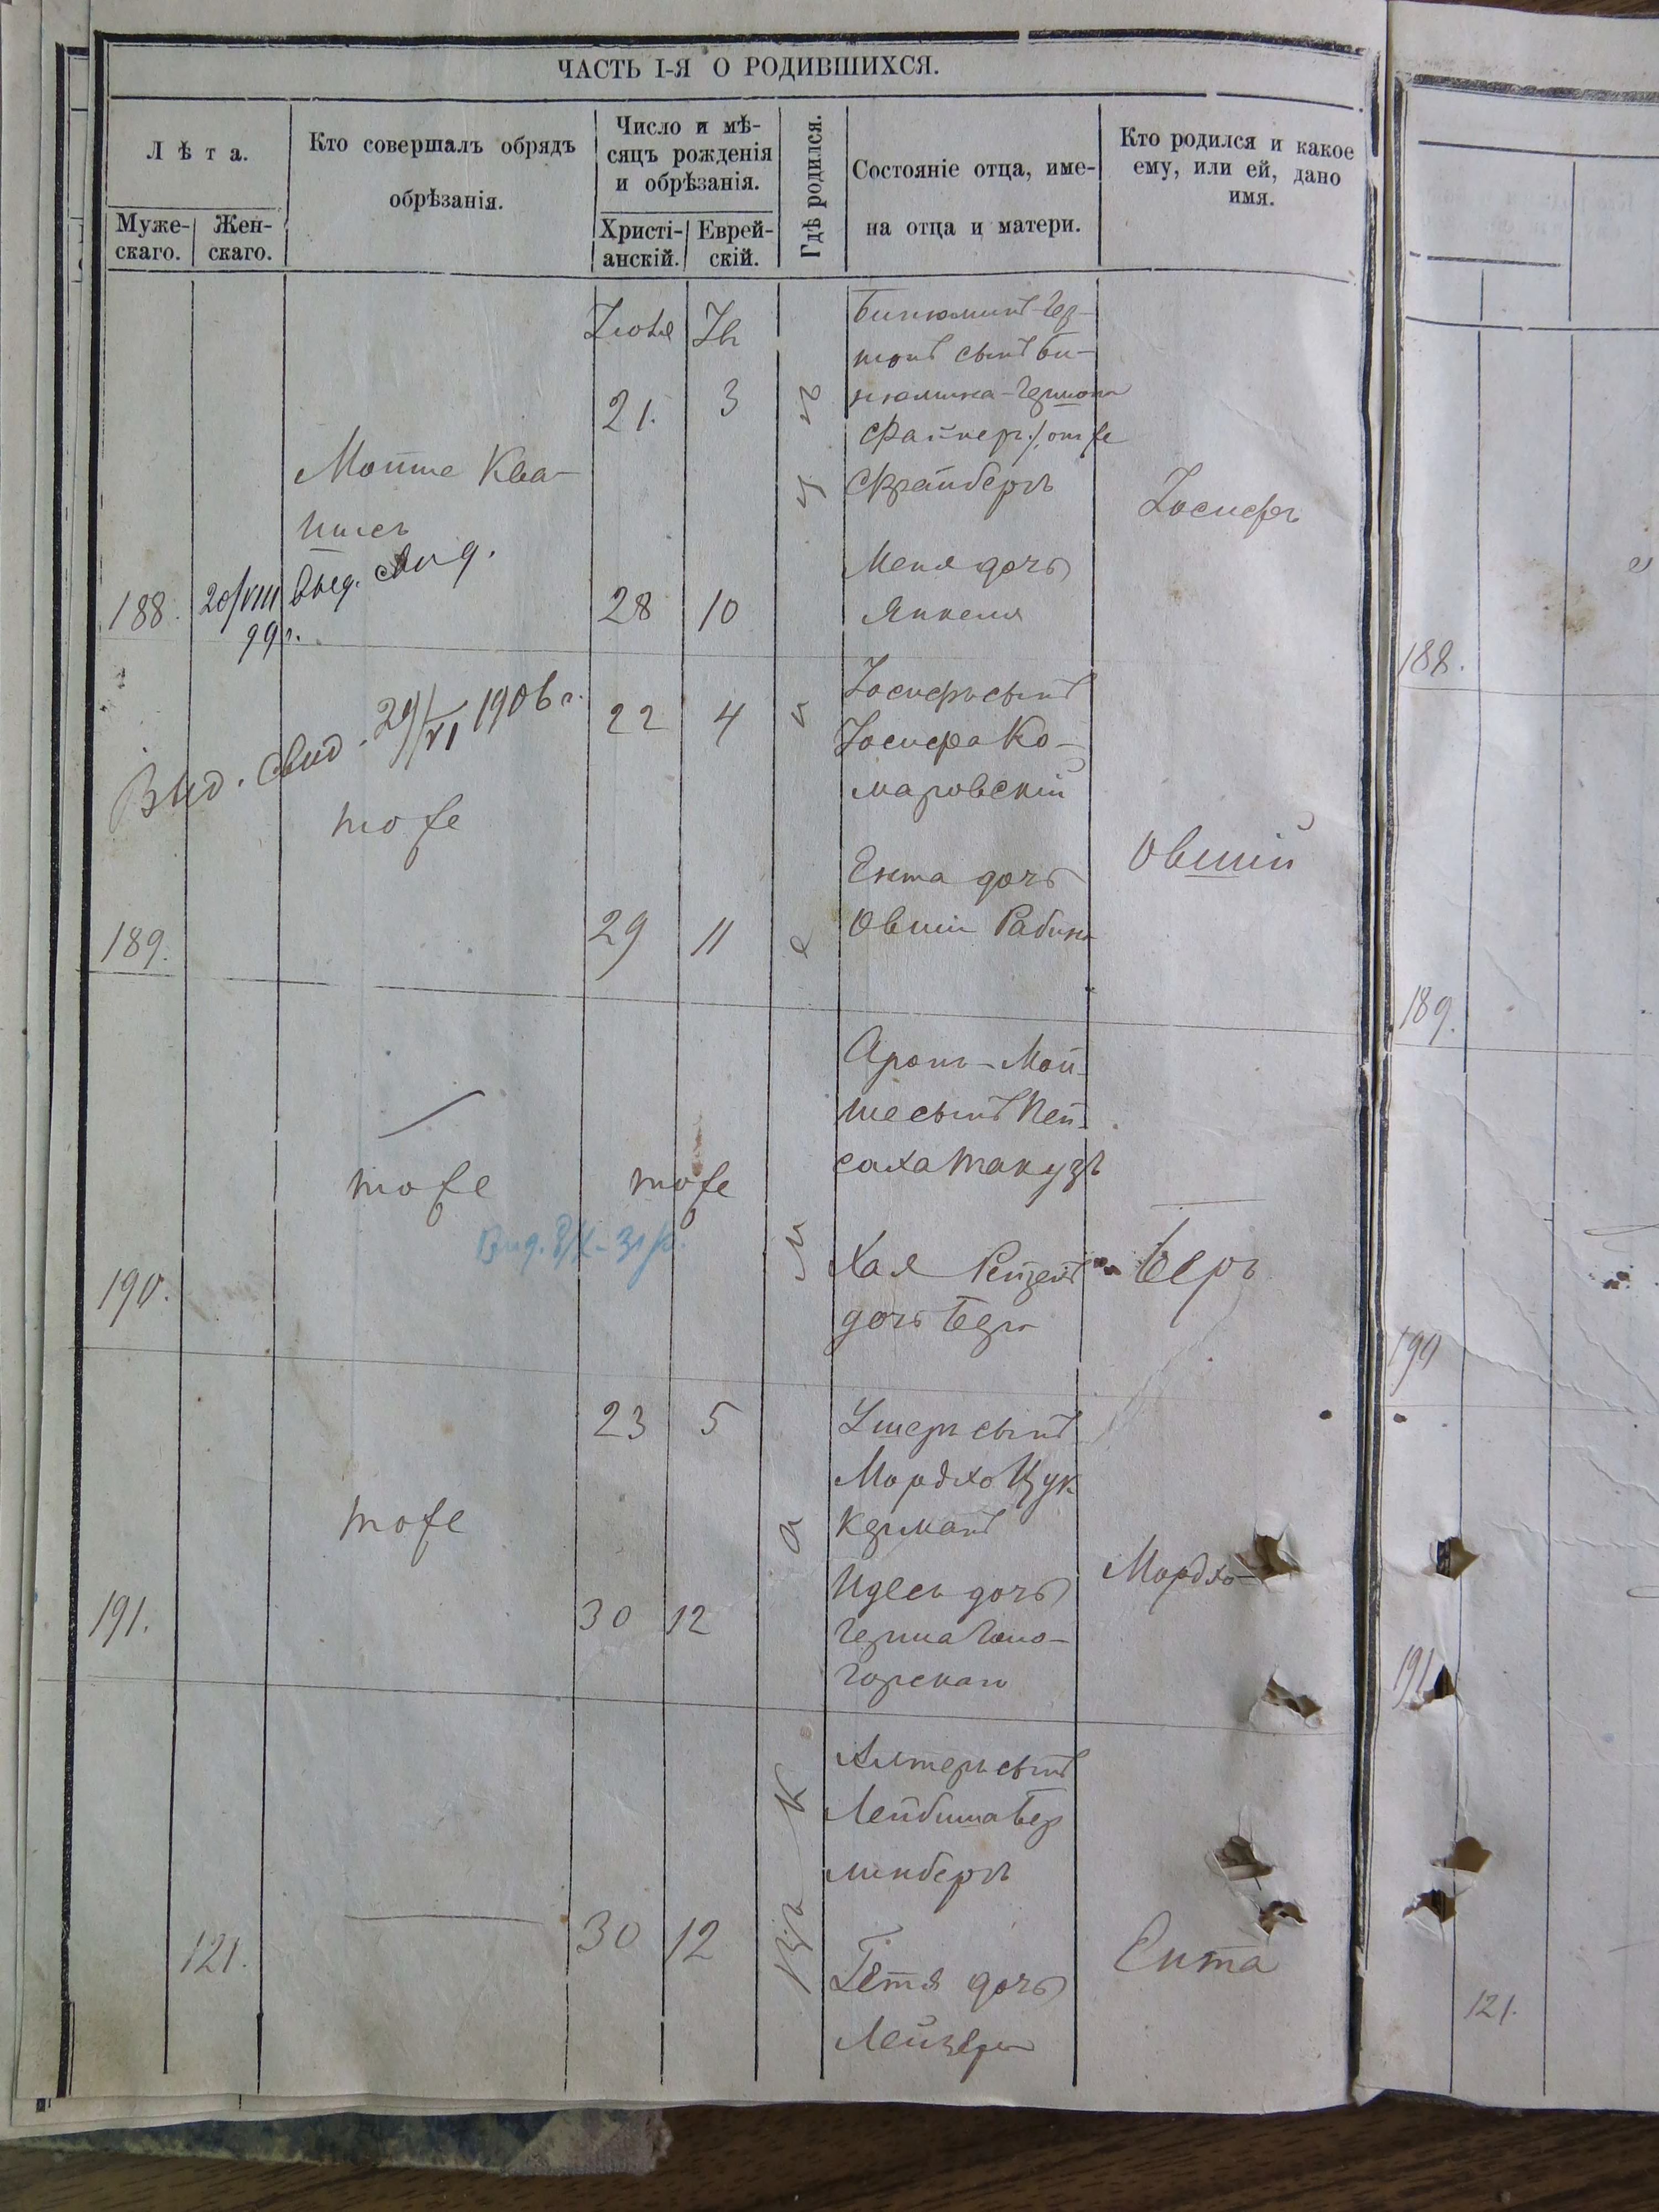 ЧАСТЬ I-Я О РОДИВШИХСЯ.
Лѣта.
Муже-
скаго.
Жен-
скаго.
Кто совершалъ обрядъ
обрѣзанія.
Число и мѣ-
сяцъ рожденія
и обрѣзанія.
Христі-
анскій.
Еврей-
скій.
Гдѣ родился.
Состояніе отца, име-
на отца и матери.
Кто родился и какое
ему, или ей, дано
имя.
188.
20/VIII
99 г.
Мошие Ква-
Выд. свид.
Іюля
21.
28
3
10
Бинюминъ-Гер-
шонъ сынъ Би-
нюмина-Гершона
Файнер
Меня дочь
Янкеля
Іосифъ
189.
Выд. свид. 29/VI 1906 г.
тоже
22
29
4
11
Іосифъ сынъ
Іосифа Ко-
маровскій
Ента дочь
Овшія Рабин
Овшій
190.
тоже
тоже
Аронъ-Мой-
ше сынъ Пей-
саха
Хая
дочь Бера
Беръ
191.
тоже
23
30
5
12
Ушеръ сынъ
Мордхо Цук
керманъ
Идесь дочь
Герша
горскаго
Мордхо
121.
30
12
Алтеръ сынъ
Лейбиша Бер
линберъ
дочь
Лейзера
Ента
188.
189.
190
191
121.